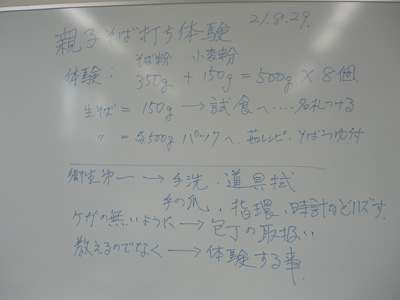 親子そば打ち体験 21.8.29.
そば粉 小麦粉
体験: 350g + 150g = 500g × 8個
生そば = 150g → 試食へ……名札つける
〃 = 500g パックへ
衛生第一 → 手洗、道具拭
手の爪、指環、時計などハズす.
ケガの無いように → 包丁の取扱い
教えるのでなく → 体験する事.